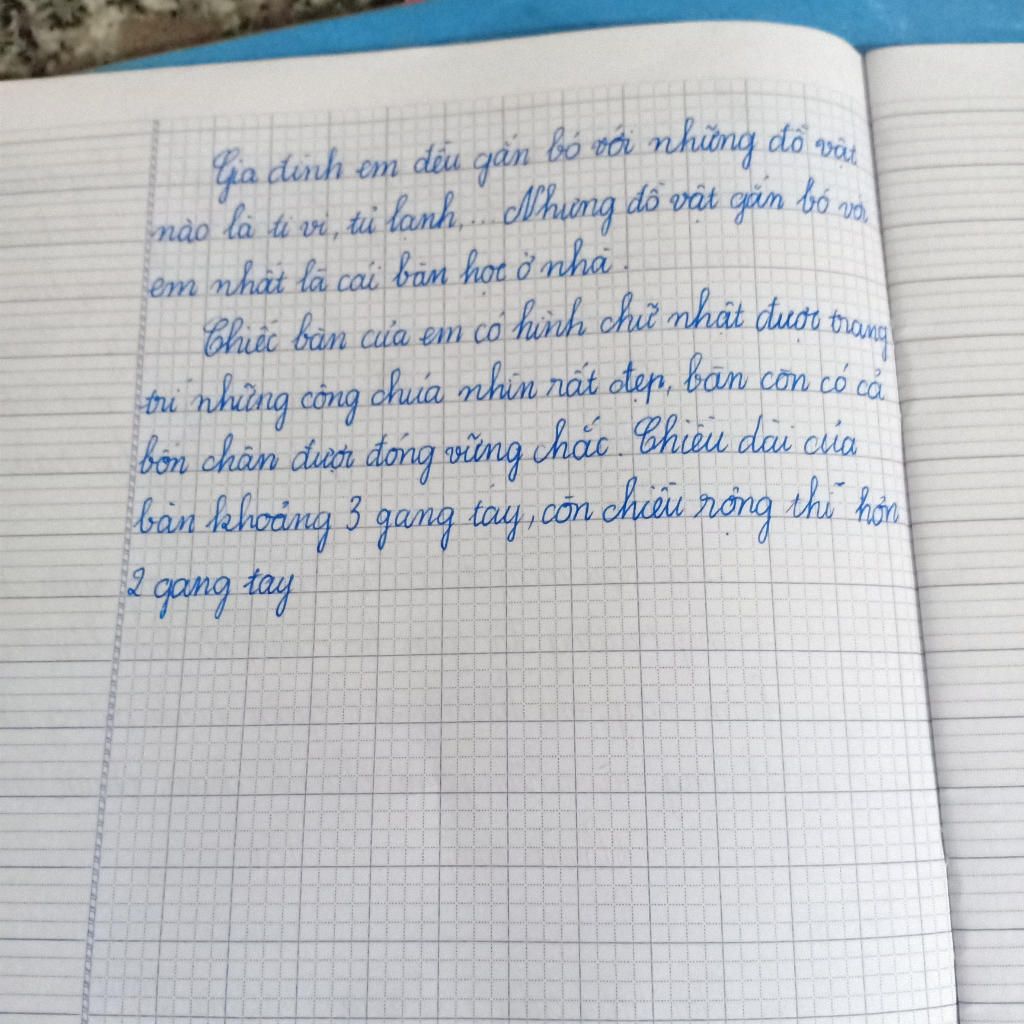 Gia đình em đều gắn bó với những đồ vật
nào là ti vi, tủ lạnh,... Nhưng đồ vật gắn bó với
em nhất là cái bàn học ở nhà.
Chiếc bàn của em có hình chữ nhật được trang
trí những công chúa nhìn rất đẹp, bàn còn có cả
bốn chân được đóng vững chắc. Chiều dài của
bàn khoảng 3 gang tay, còn chiều rộng thì hơn
2 gang tay